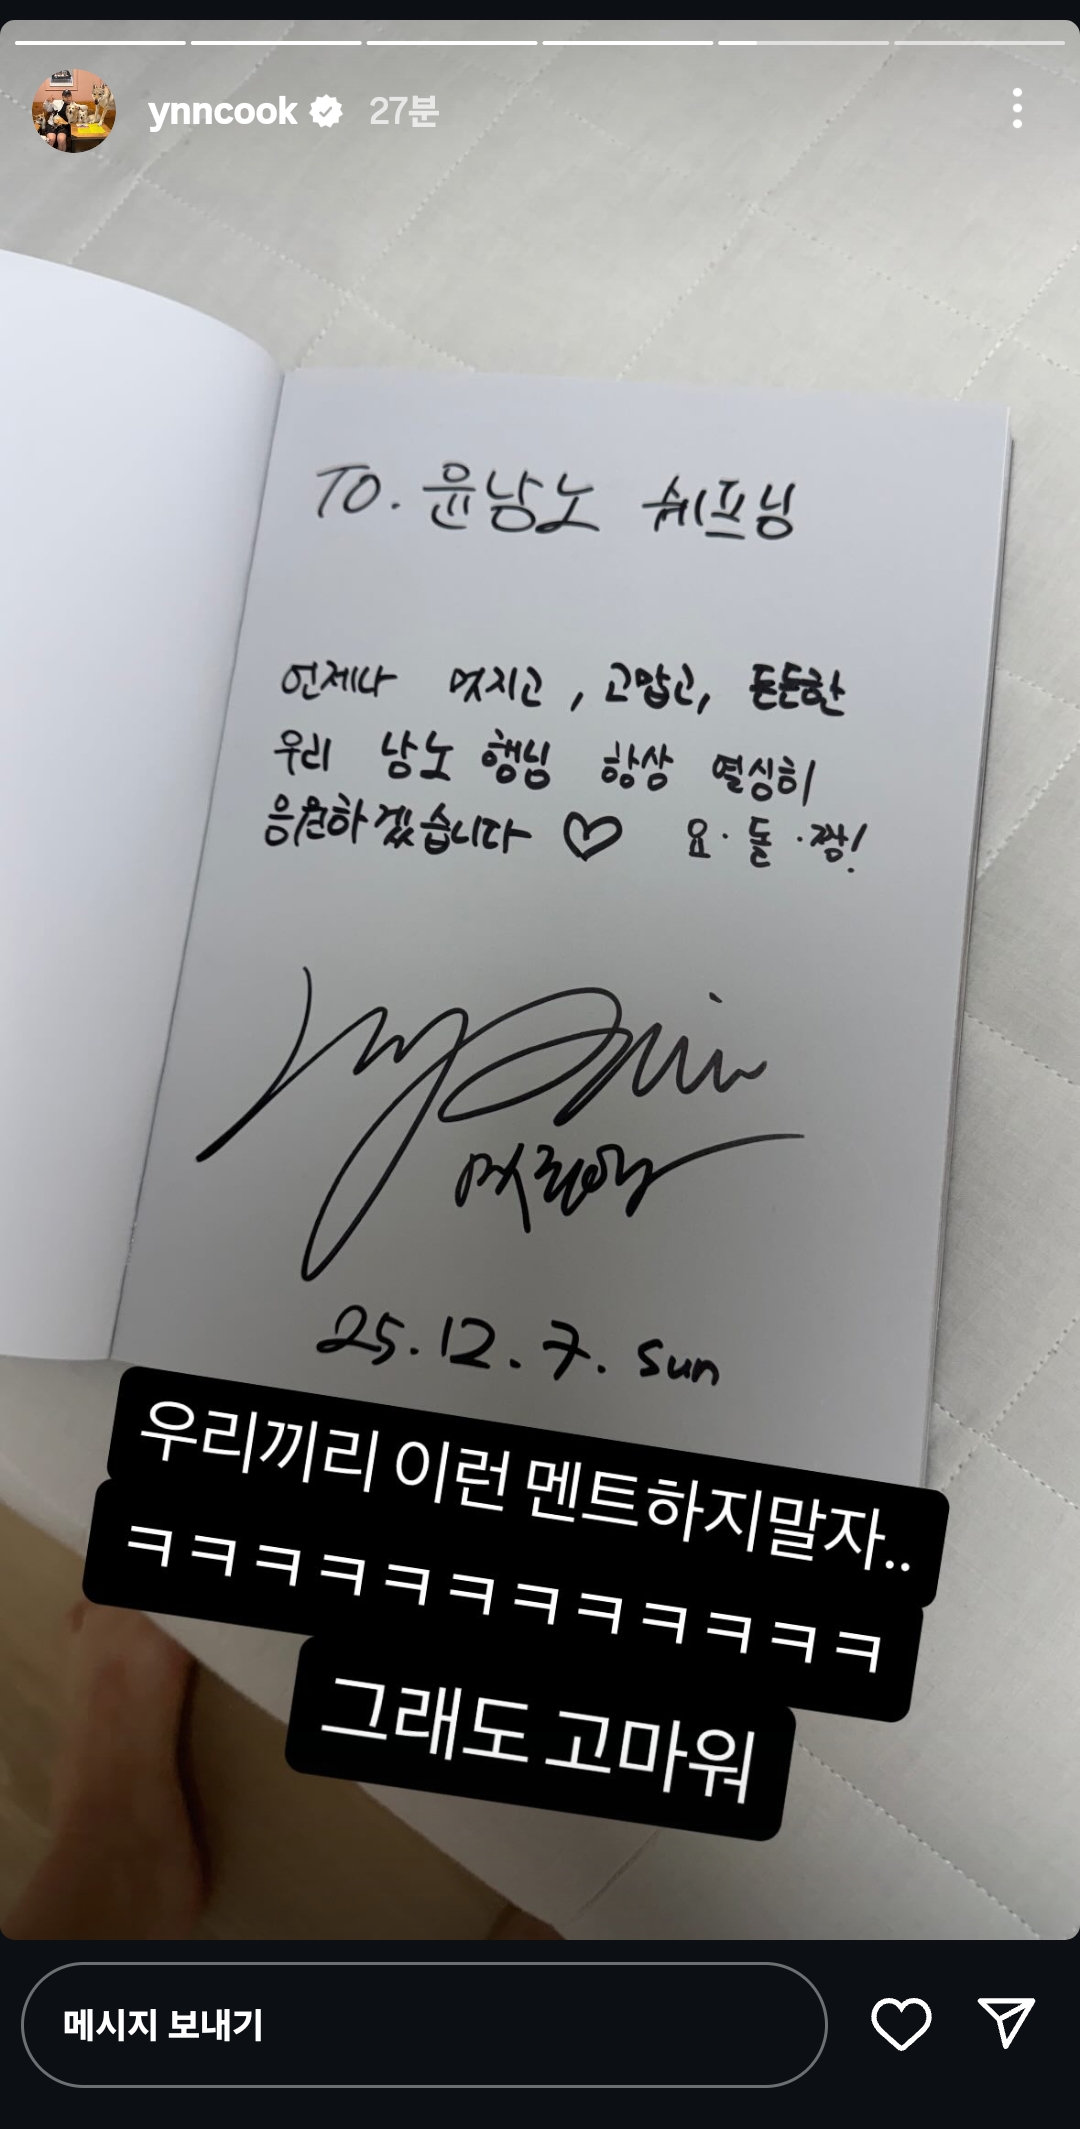 ynncook 27분
TO. 윤남노 쉐프님
언제나 멋지고, 고맙고, 든든한
우리 남노 행님 항상 열심히
응원하겠습니다 ♡ 요·돌·짱!
25.12.7. Sun
우리끼리 이런 멘트하지말자..
ㅋㅋㅋㅋㅋㅋㅋㅋㅋㅋㅋㅋ
그래도 고마워
메시지 보내기